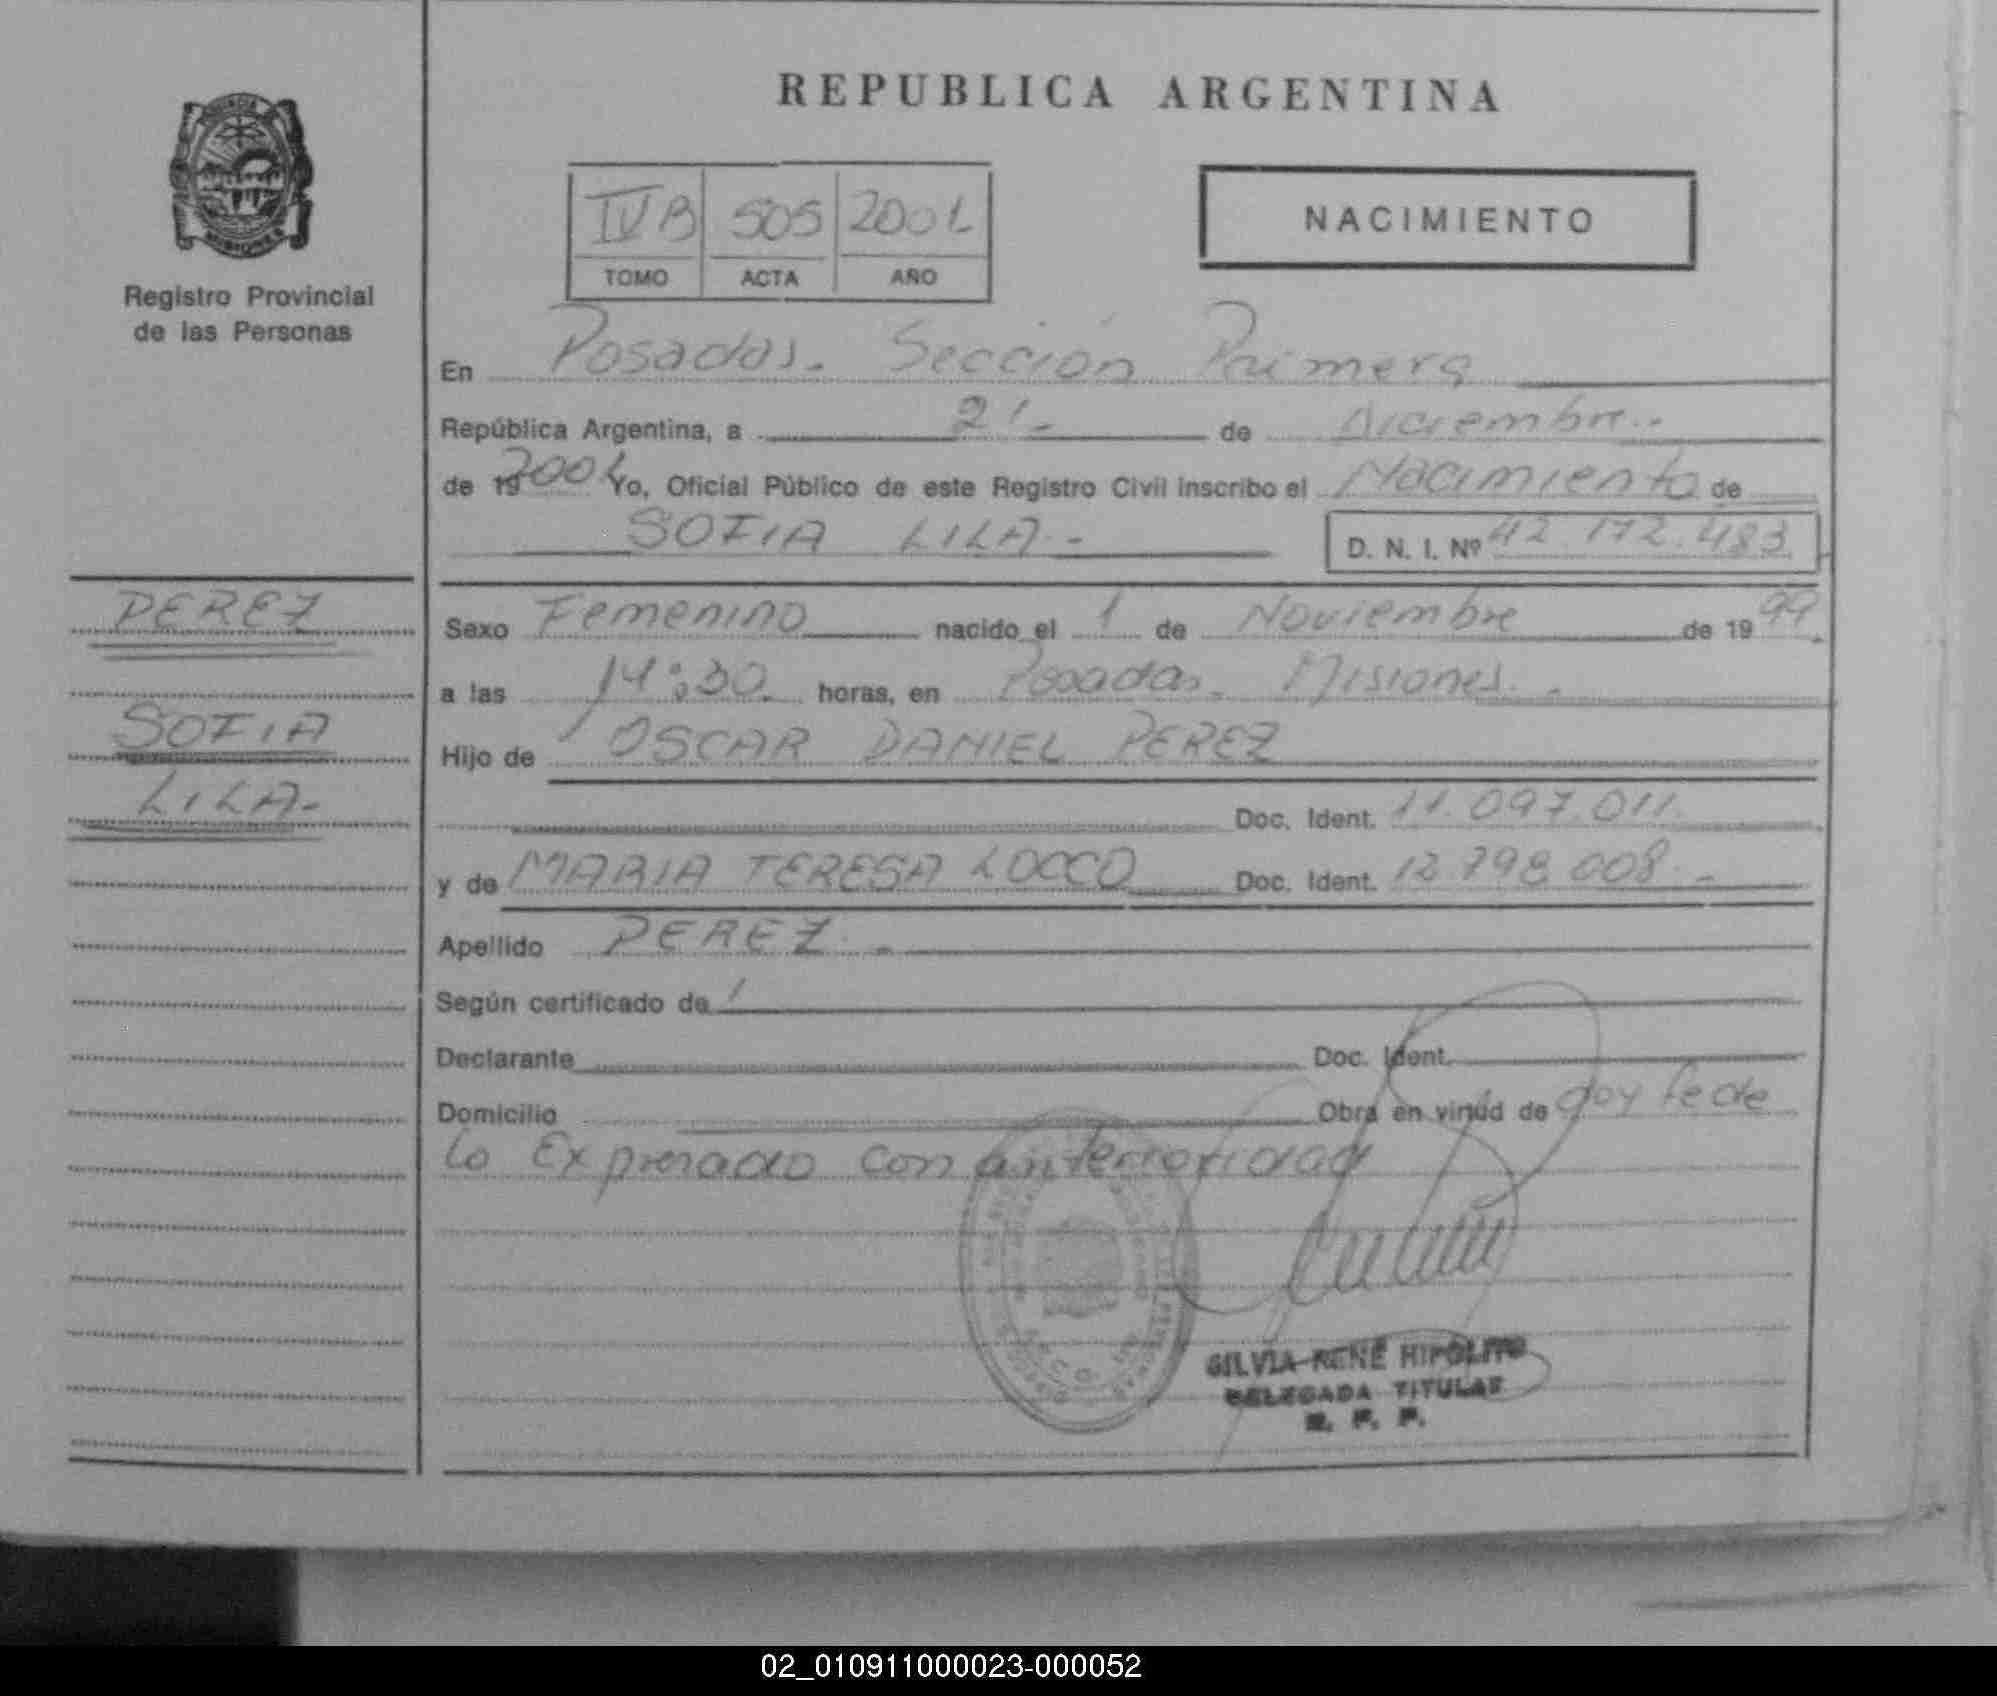 REPUBLICA ARGENTINA
Registro Provincial
de las Personas
IV B 505 2001
TOMO ACTA AÑO
NACIMIENTO
En Posadas. Sección Primera
República Argentina, a 21 - de Diciembre.-
de 19 2001 Yo, Oficial Público de este Registro Civil inscribo el Nacimiento de
SOFIA LILA - D. N. I. Nº 42.172.483
PEREZ
SOFIA
LILA-
Sexo Femenino nacido el 1 de Noviembre de 19 99
a las 14:30 horas, en Posadas. Misiones.
Hijo de OSCAR DANIEL PEREZ
Doc. Ident. 11.097.011.
y de MARIA TERESA LOCCO Doc. Ident. 12.798.008.-
Apellido PEREZ.-
Según certificado de
Declarante Doc. Ident.
Domicilio Obra en virtud de doy fe de
lo Expresado con anterioridad
SILVIA RENÉ HIPÓLITO
DELEGADA TITULAR
R. P. P.
02_010911000023-000052